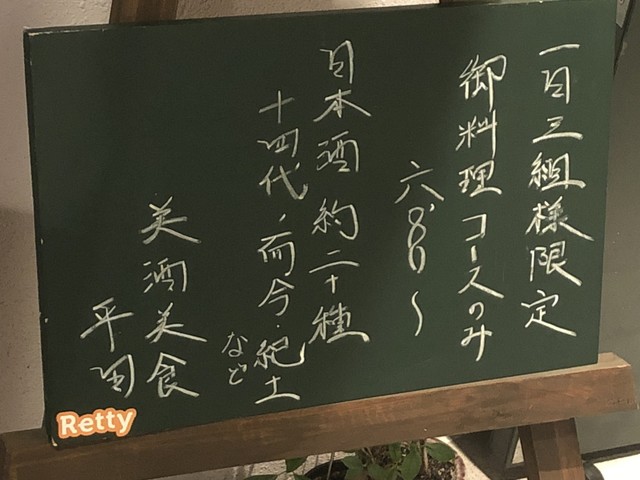 一日三組様限定
御料理コースのみ
六、800〜
日本酒 約二十種
十四代・而今・紀土
など
美酒美食
平田
Retty